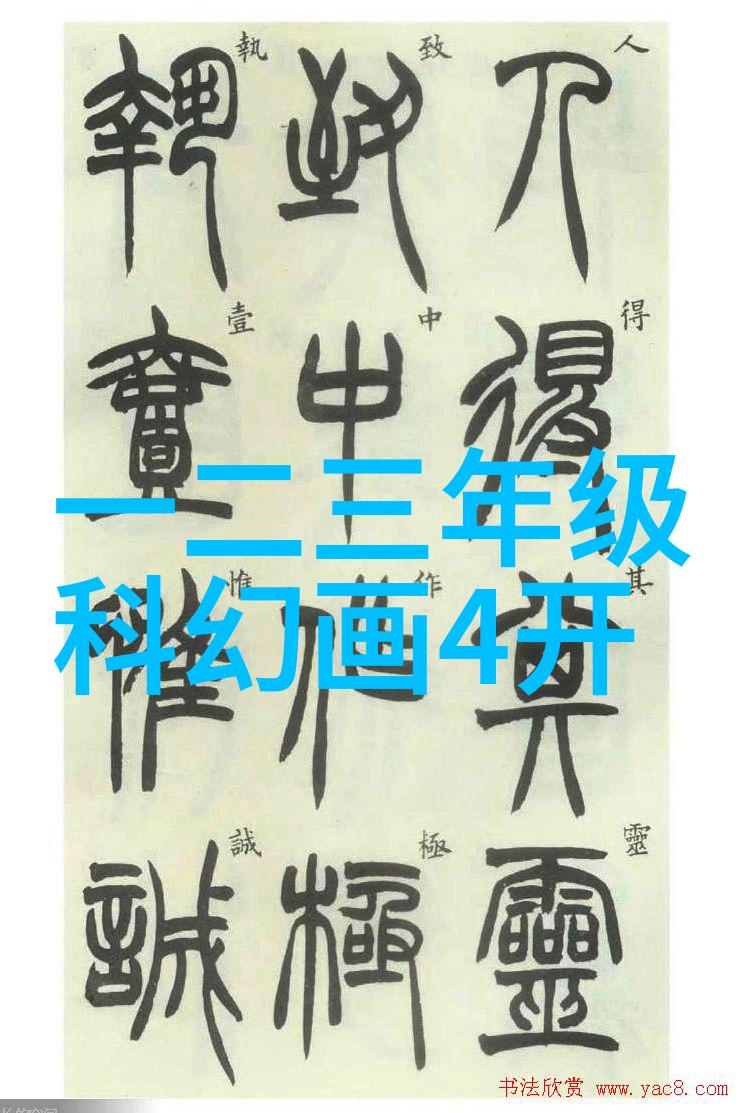 人得其靈
人得其靈
致中作極
致中作極
執壹惟誠
執壹惟誠
一二三年级
科幻画4开
书法欣赏 www.yac8.com